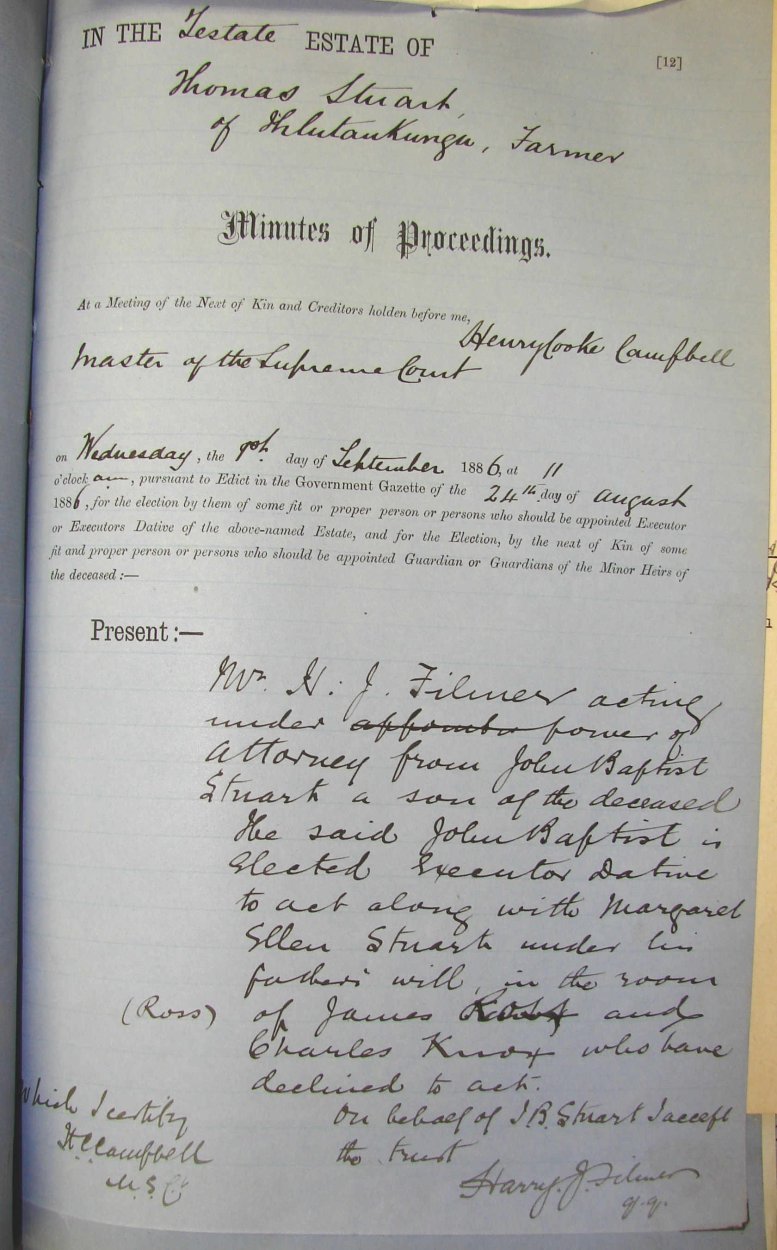 IN THE Testate ESTATE OF
[12]
Thomas Stuart,
of Hlutankungu, Farmer
Minutes of Proceedings.
At a Meeting of the Next of Kin and Creditors holden before me,
Henry Cooke Campbell
Master of the Supreme Court
on Wednesday, the 1st day of September 1886, at 11
o'clock am, pursuant to Edict in the Government Gazette of the 24th day of August
1886, for the election by them of some fit or proper person or persons who should be appointed Executor
or Executors Dative of the above-named Estate, and for the Election, by the next of Kin of some
fit and proper person or persons who should be appointed Guardian or Guardians of the Minor Heirs of
the deceased:—
Present:—
Mr. H. J. Filmer acting
under power of
attorney from John Baptist
Stuart a son of the deceased
The said John Baptist is
Elected Executor Dative
to act along with Margaret
Ellen Stuart under his
father's will, in the room
(Ross) of James and
Charles Knox who have
declined to act.
Which I certify
H C Campbell
M.S.C
On behalf of J B. Stuart I accept
the trust
Harry. J. Filmer
q.q.